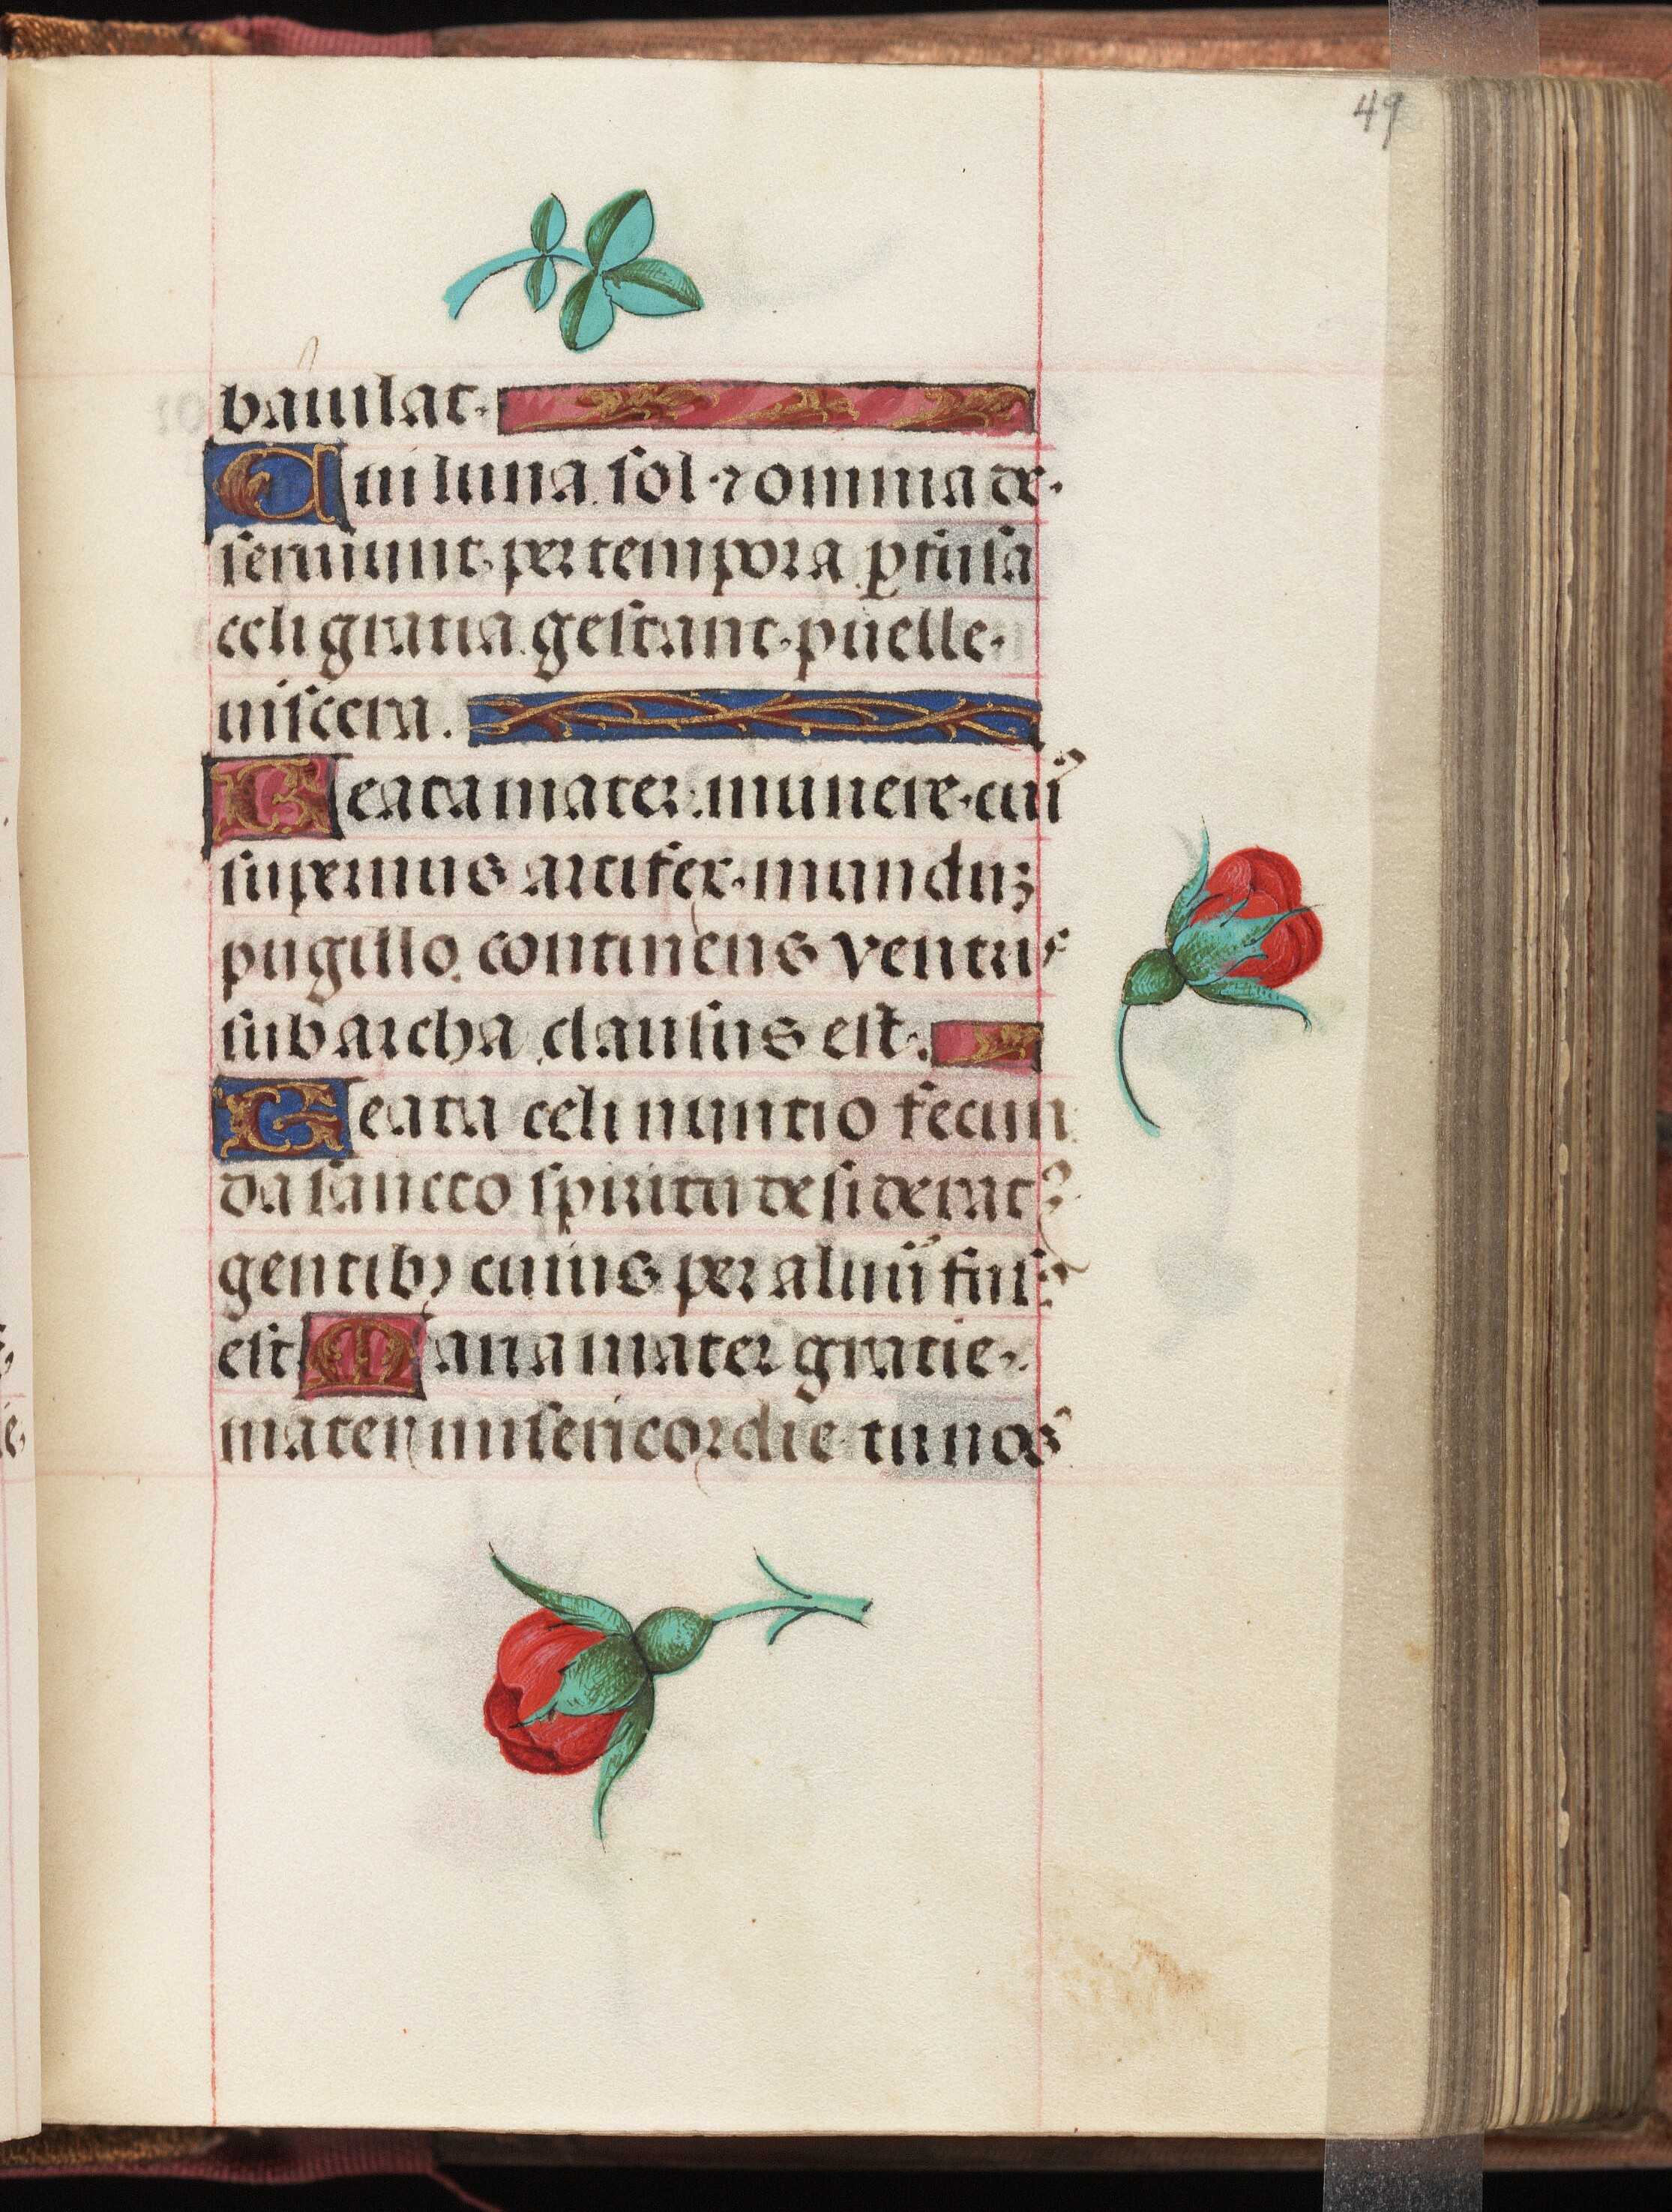 49
bauulat.
Cui luna sol ⁊ omnia de-
seruiunt per tempora ꝑfusa
celi gratia gestant puelle
uiscera.
Beata mater munere cuiꝰ
supernus artifex mundũ
pugillo continens ventris
sub archa clausus est.
Beata celi nuntio fecun
da sancto spiritu desideratꝰ
gentibꝫ cuius per aluũ fusꝰ
est Maria mater gratie
mater misericordie tu nos